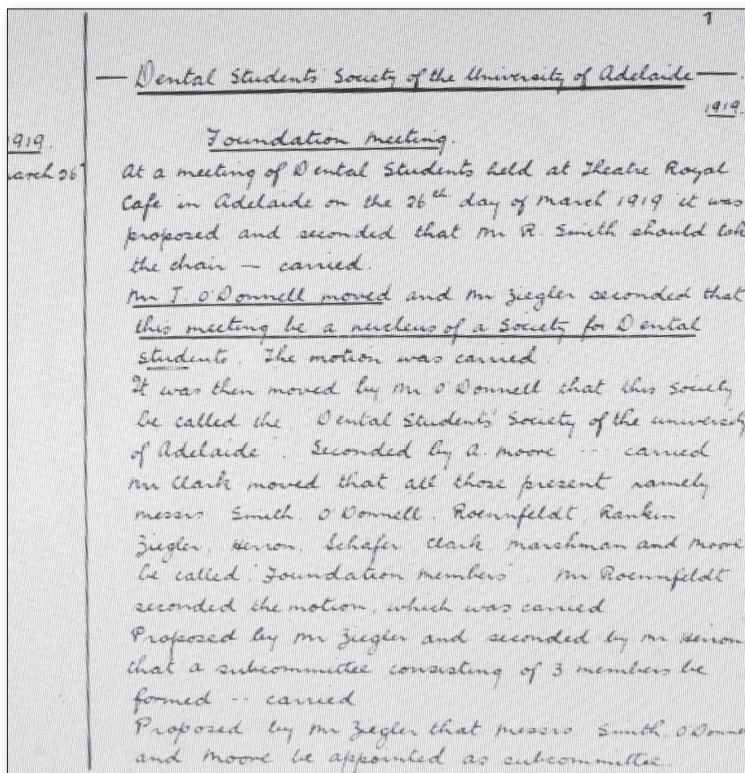 1
— Dental Students' Society of the University of Adelaide —.
1919.
1919.
March 26
Foundation Meeting.
At a meeting of Dental Students held at Theatre Royal
Cafe in Adelaide on the 26th day of March 1919 it was
proposed and seconded that Mr R. Smith should tak
the chair — carried.
Mr T O'Donnell moved and Mr Ziegler seconded that
this meeting be a nucleus of a Society for Dental
Students. The motion was carried.
It was then moved by Mr O'Donnell that this Society
be called the "Dental Students' Society of the University
of Adelaide". Seconded by A. Moore -- carried
Mr Clark moved that all those present namely
Messrs Smith, O'Donnell, Roennfeldt, Rankin
Ziegler, Herron, Schafer Clark Marshman and Moore
be called "Foundation Members". Mr Roennfeldt
seconded the motion, which was carried
Proposed by Mr Ziegler and seconded by Mr Herron
that a subcommittee consisting of 3 members be
formed -- carried
Proposed by Mr Ziegler that Messrs Smith, O'Donne
and Moore be appointed as subcommittee.